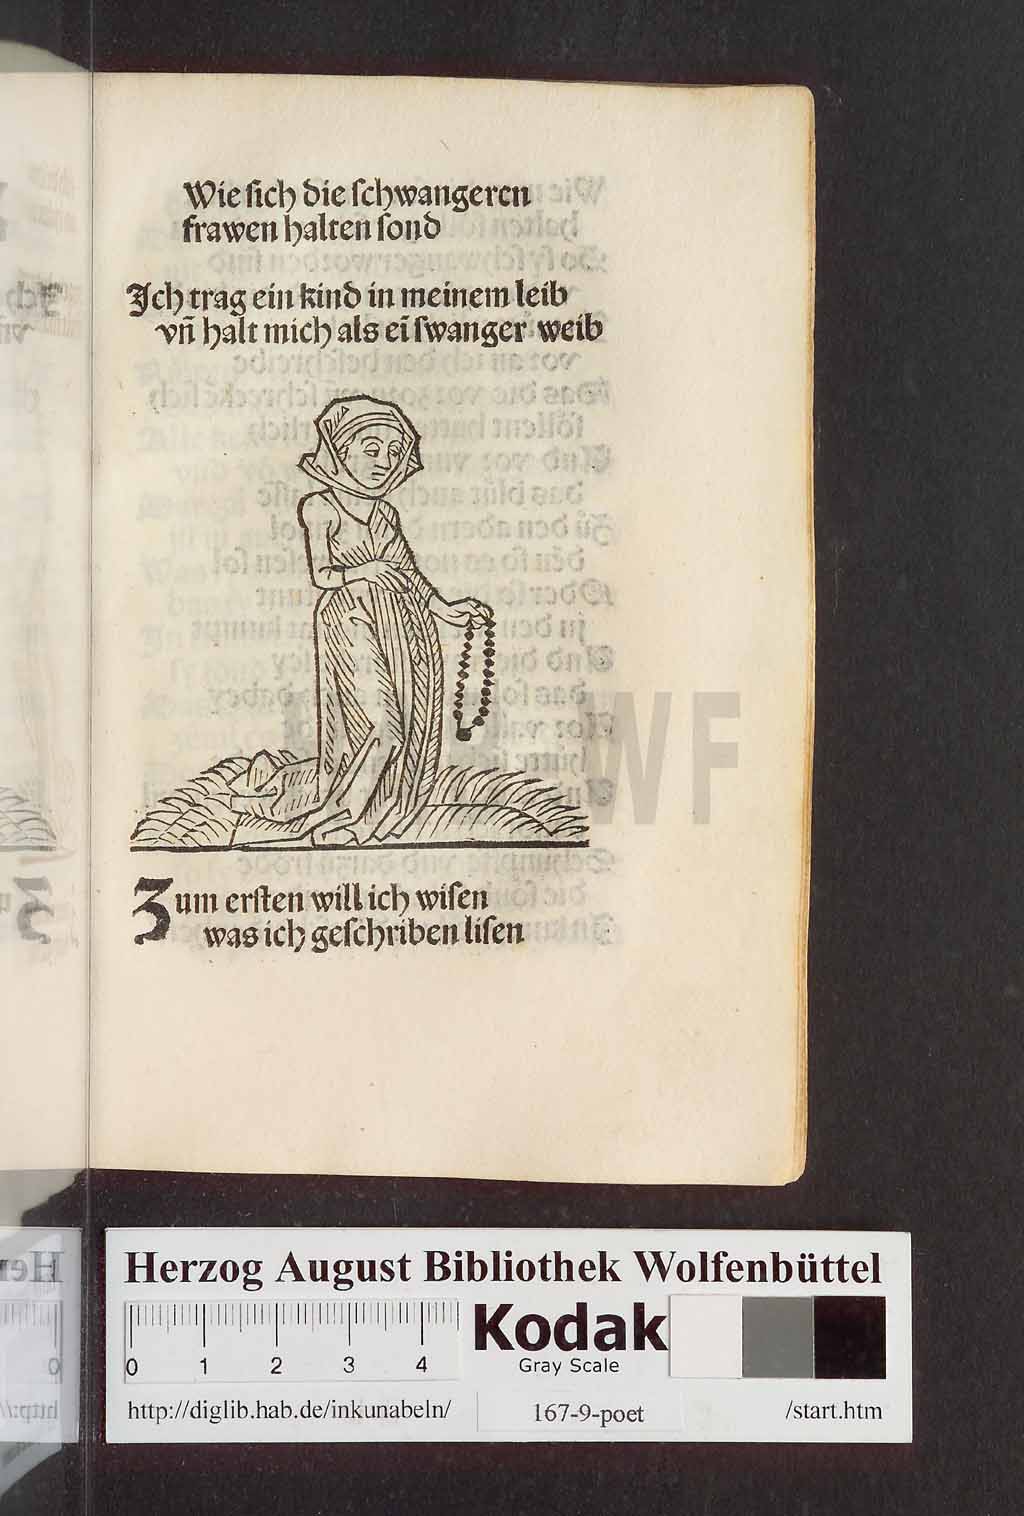 Wie sich die schwangeren
frawen halten sond
Ich trag ein kind in meinem leib
vñ halt mich als eī swanger weib
Zum ersten will ich wisen
was ich geschriben lisen
WF
Herzog August Bibliothek Wolfenbüttel
0 1 2 3 4
Kodak
Gray Scale
http://diglib.hab.de/inkunabeln/
167-9-poet
/start.htm